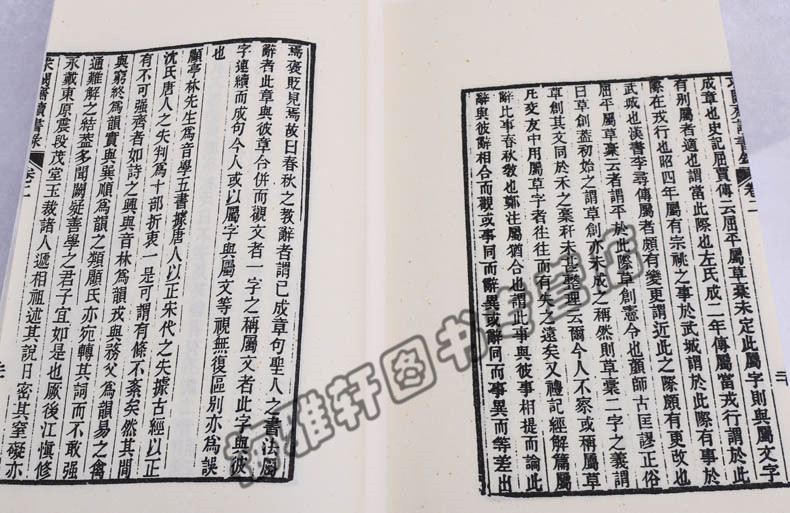 求闕齋讀書錄 卷二
成章也史記屈賈傳云屈平屬草藁未定此屬字則與屬文字
有別屬者適也謂當此際也左氏成二年傳屬當戎行謂於此
際在戎行也昭四年屬有宗祧之事於武城謂於此際有事於
武城也漢書李尋傳屬者頗有變更謂近此之際頗有更改也
屈平屬草藁云者謂平於此際草創憲令也顏師古匡謬正俗
曰草創蓋初始之謂草創亦未成之稱然則草藁二字之義謂
草創其文同於禾之藁秆未甚整理云爾今人不察或稱屬草
凡交友中用屬草字者往往而有失之遠矣又禮記經解篇屬
辭比事春秋教也鄭注屬猶合也謂此事與彼事相提而論此
辭與彼辭相合而觀或事同而辭異或辭同而事異而等差出
焉褒貶見焉故曰春秋之教辭者謂已成章句聖人之書法屬
辭者此章與彼章合併而觀文者一字之稱屬文者此字與彼
字連續而成句今人或以屬字與屬文等視無復區別亦為誤
也
顧亭林先生為音學五書據唐人以正宋代之失據古經以正
沈氏唐人之失判為十部折衷一是可謂有條不紊矣然其間
有不可強齊者如詩之興與音林為韻戎與務父為韻易之禽
與窮終為韻實與巽順為韻之類顧氏亦宛轉其詞而不敢強
通難解之結蓋多聞闕疑善學之君子宜如是也厥後江慎修
永戴東原震段茂堂玉裁諸人遞相祖述其說日密其窒礙亦
求闕齋讀書錄 卷二
雅轩图书专营店